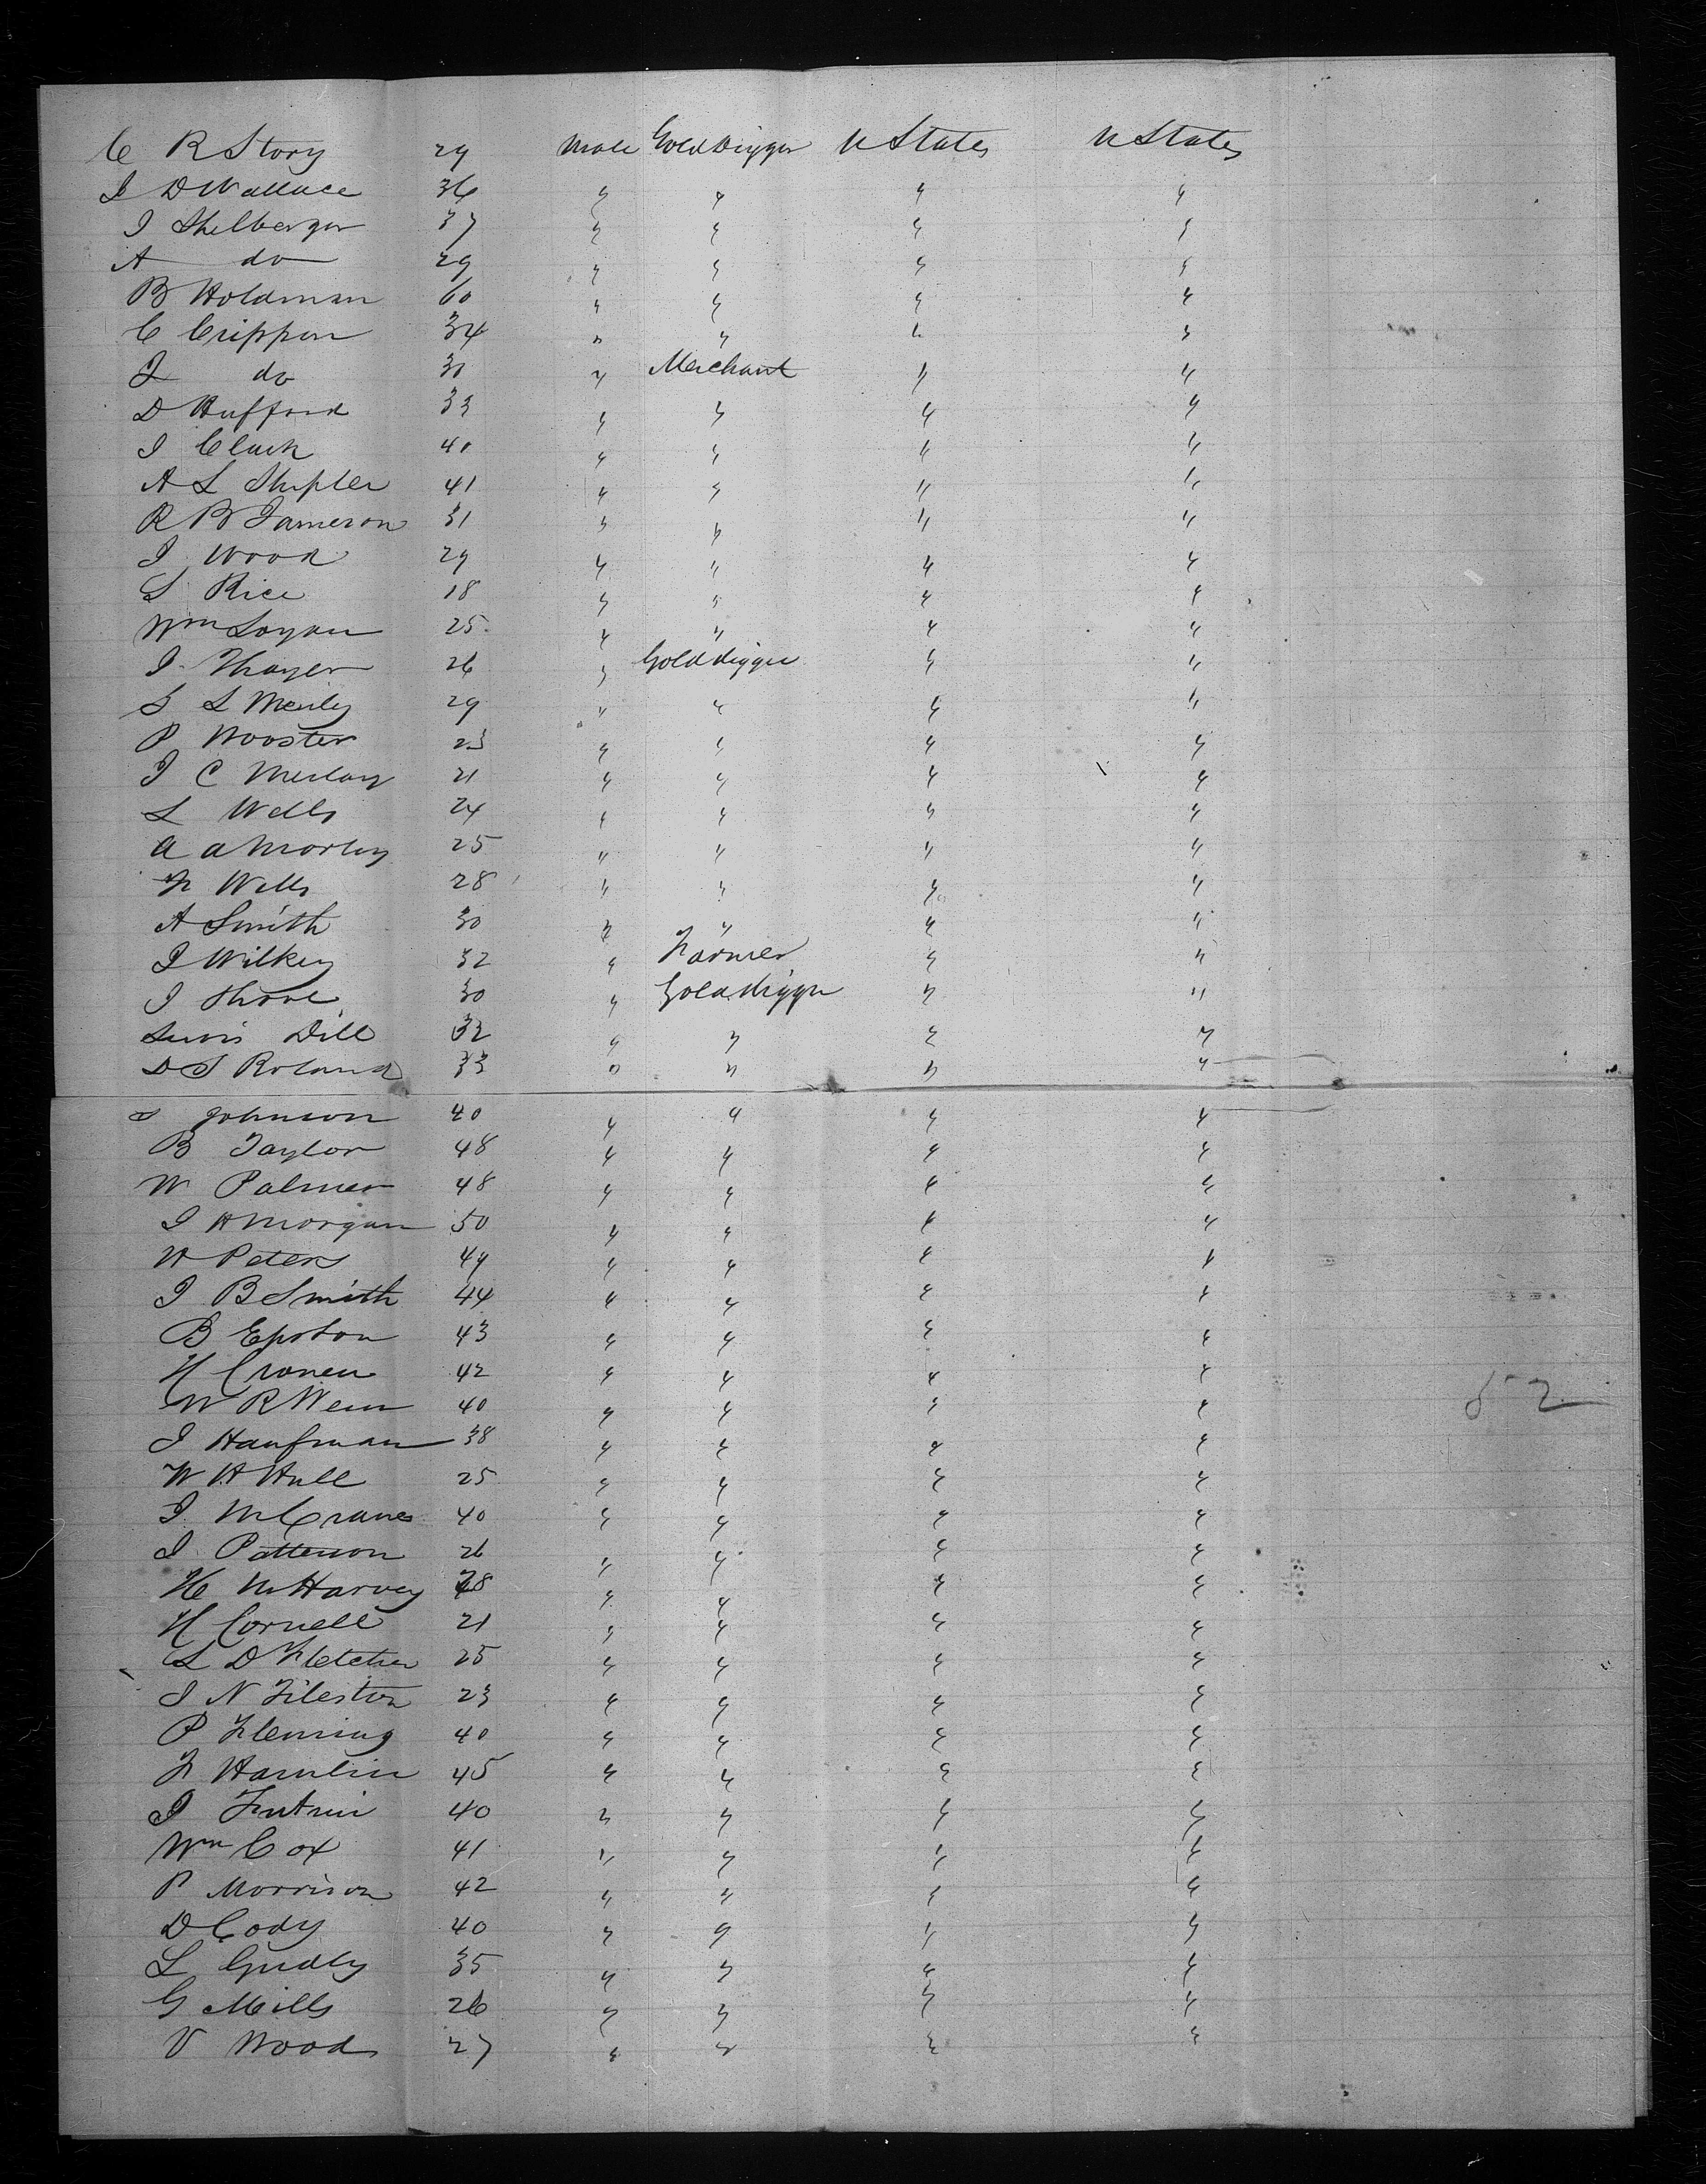 C R Story 29 Male Gold Digger U States U States
J D Wallace 36 " " " "
J Shelbarger 37 " " " "
A do 29 " " " "
B Holdman 60 " " " "
C Crippon 34 " " " "
J do 30 " Merchant " "
D Hufford 33 " " " "
J Clark 40 " " " "
A L Shipler 41 " " " "
R B Jameron 31 " " " "
J Wood 29 " " " "
S Rice 18 " " " "
Wm Logan 25 " " " "
J Thayer 26 " Gold digger " "
S L 29 " " " "
P Wooster 23 " " " "
J C 21 " " " "
L Wells 24 " " " "
A A Morley 25 " " " "
F Wells 28 " " " "
A Smith 30 " " " "
J Wilkey 32 " Farmer " "
J Shove 30 " Gold digger " "
Lewis Dill 32 " " " "
D S Roland 33 " " " "
S Johnson 40 " " " "
B Taylor 48 " " " "
W Palmer 48 " " " "
J H Morgan 50 " " " "
H Peters 49 " " " "
J B Smith 44 " " " "
B Epston 43 " " " "
H Cronen 42 " " " "
W R 40 " " " "
J Haufman 38 " " " "
W H Hull 25 " " " "
J M Cranes 40 " " " "
J Patterson 26 " " " "
H M Harvey 28 " " " "
H Cornell 21 " " " "
L D Fletcher 25 " " " "
J N Tileston 23 " " " "
P Fleming 40 " " " "
F Hamlin 45 " " " "
J 40 " " " "
Wm Cox 41 " " " "
P Morrison 42 " " " "
D Cody 40 " " " "
L Gridley 35 " " " "
G Mills 26 " " " "
V Woods 27 " " " "
52